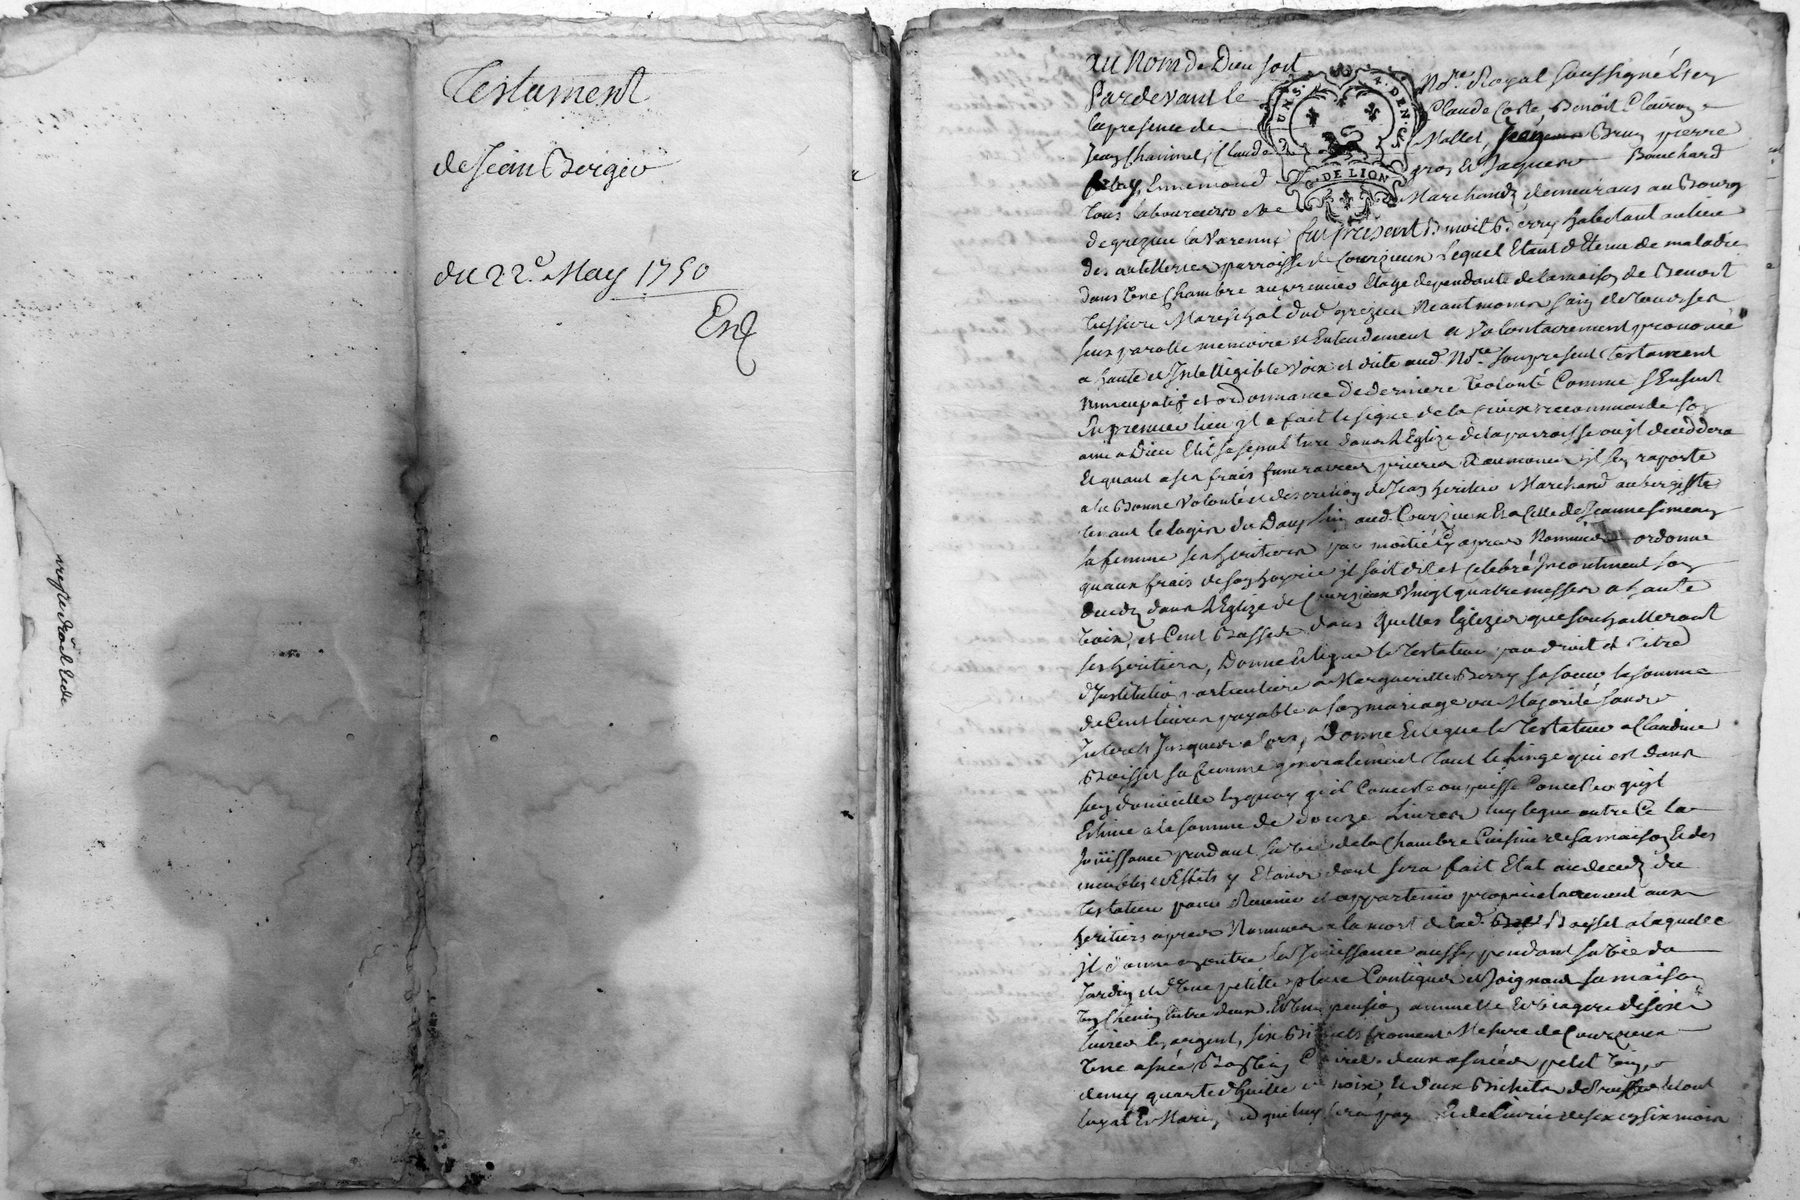 Testament
de Jean Bergier
du 22e. May 1750
Exp
au Nom de Dieu soit
Pardevant le Nore. Royal soussigné et en
la presence de Claude Coste, Benoit
Mollet, Jean Brun pierre
Jean Claude et Jaques Bouchard
Ennemond Marchand demeurans au Bourg
tous laboureurs
de grezieu la Varenne fut présent Benoit Berry habitant au lieu
des autelleries parroisse de Courzieux Lequel Etant detenu de maladie
dans une Chambre au premier Etage dependante de la maison de Benoit
Mareschal dud. grezieu Neantmoins sain de tous ses
sens parolle memoire et Entendement a Volontairement prononcé
a haute et Intelligible Voix et dicté aud. Nore. son present testament
nuncupatif et ordonnance de derniere Volonté Comme s'Ensuit
En premier lieu il a fait le signe de la Croix recommandé son
ame a Dieu Elit sa sepulture dans l'Eglize de la parroisse ou il deceddera
Et quant a ses frais funeraires prieres et aumones il s'en raporte
a la Bonne Volonté et discretion de Jean heritier Marchand aubergiste
tenant le logis du Dauphin aud. Courzieux Et a Celle de Jeanne Simean
sa femme ses heritiers par moitié cy apres Nommés ordonne
qu'aux frais de son hoyrie il soit dit et Celebré Incontinent son
decedz dans l'Eglize de Courzieux Vingt quatre messes a haute
Voix, et Cent Basses dans quelles Eglizes que souhaitteront
ses heritiers, Donne et legue le Testateur par droit et titre
d'Institution particuliere a Marguerite Berry sa soeur la somme
de Cent livres payable a son mariage ou Majorité sans
Interets Jusques alors, Donne et legue le Testateur a Claudine
Boisset sa femme generalement tout le Linge qui est dans
son domicille en quoy qu'il Consiste ou puisse Consister qu'il
Estime a la somme de douze Livres luy legue outre Ce la
Jouissance pendant sa vie de la Chambre Cuisine de sa maison et des
meubles et Effets y Etans dont sera fait Etat au decedz du
testateur pour Revenir et appartenir proprietairement aux
heritiers apres Nommés a la mort de lad. Boisset a laquelle
il donne en outre la Jouissance aussy pendant sa vie du
Jardin et d'une petite place Contigue et Joignant sa maison
un Chemin Entre deux. Et une pension annuelle et viagere de six
livres en argent, six Bichets froment Mesure de Courzieux
une asnée Bon vin deux asnées petit vin,
demy quarte d'huille de noix, Et deux Bichets de tout
loyal et Marchand qui luy sera payé Et delivré de six en six mois